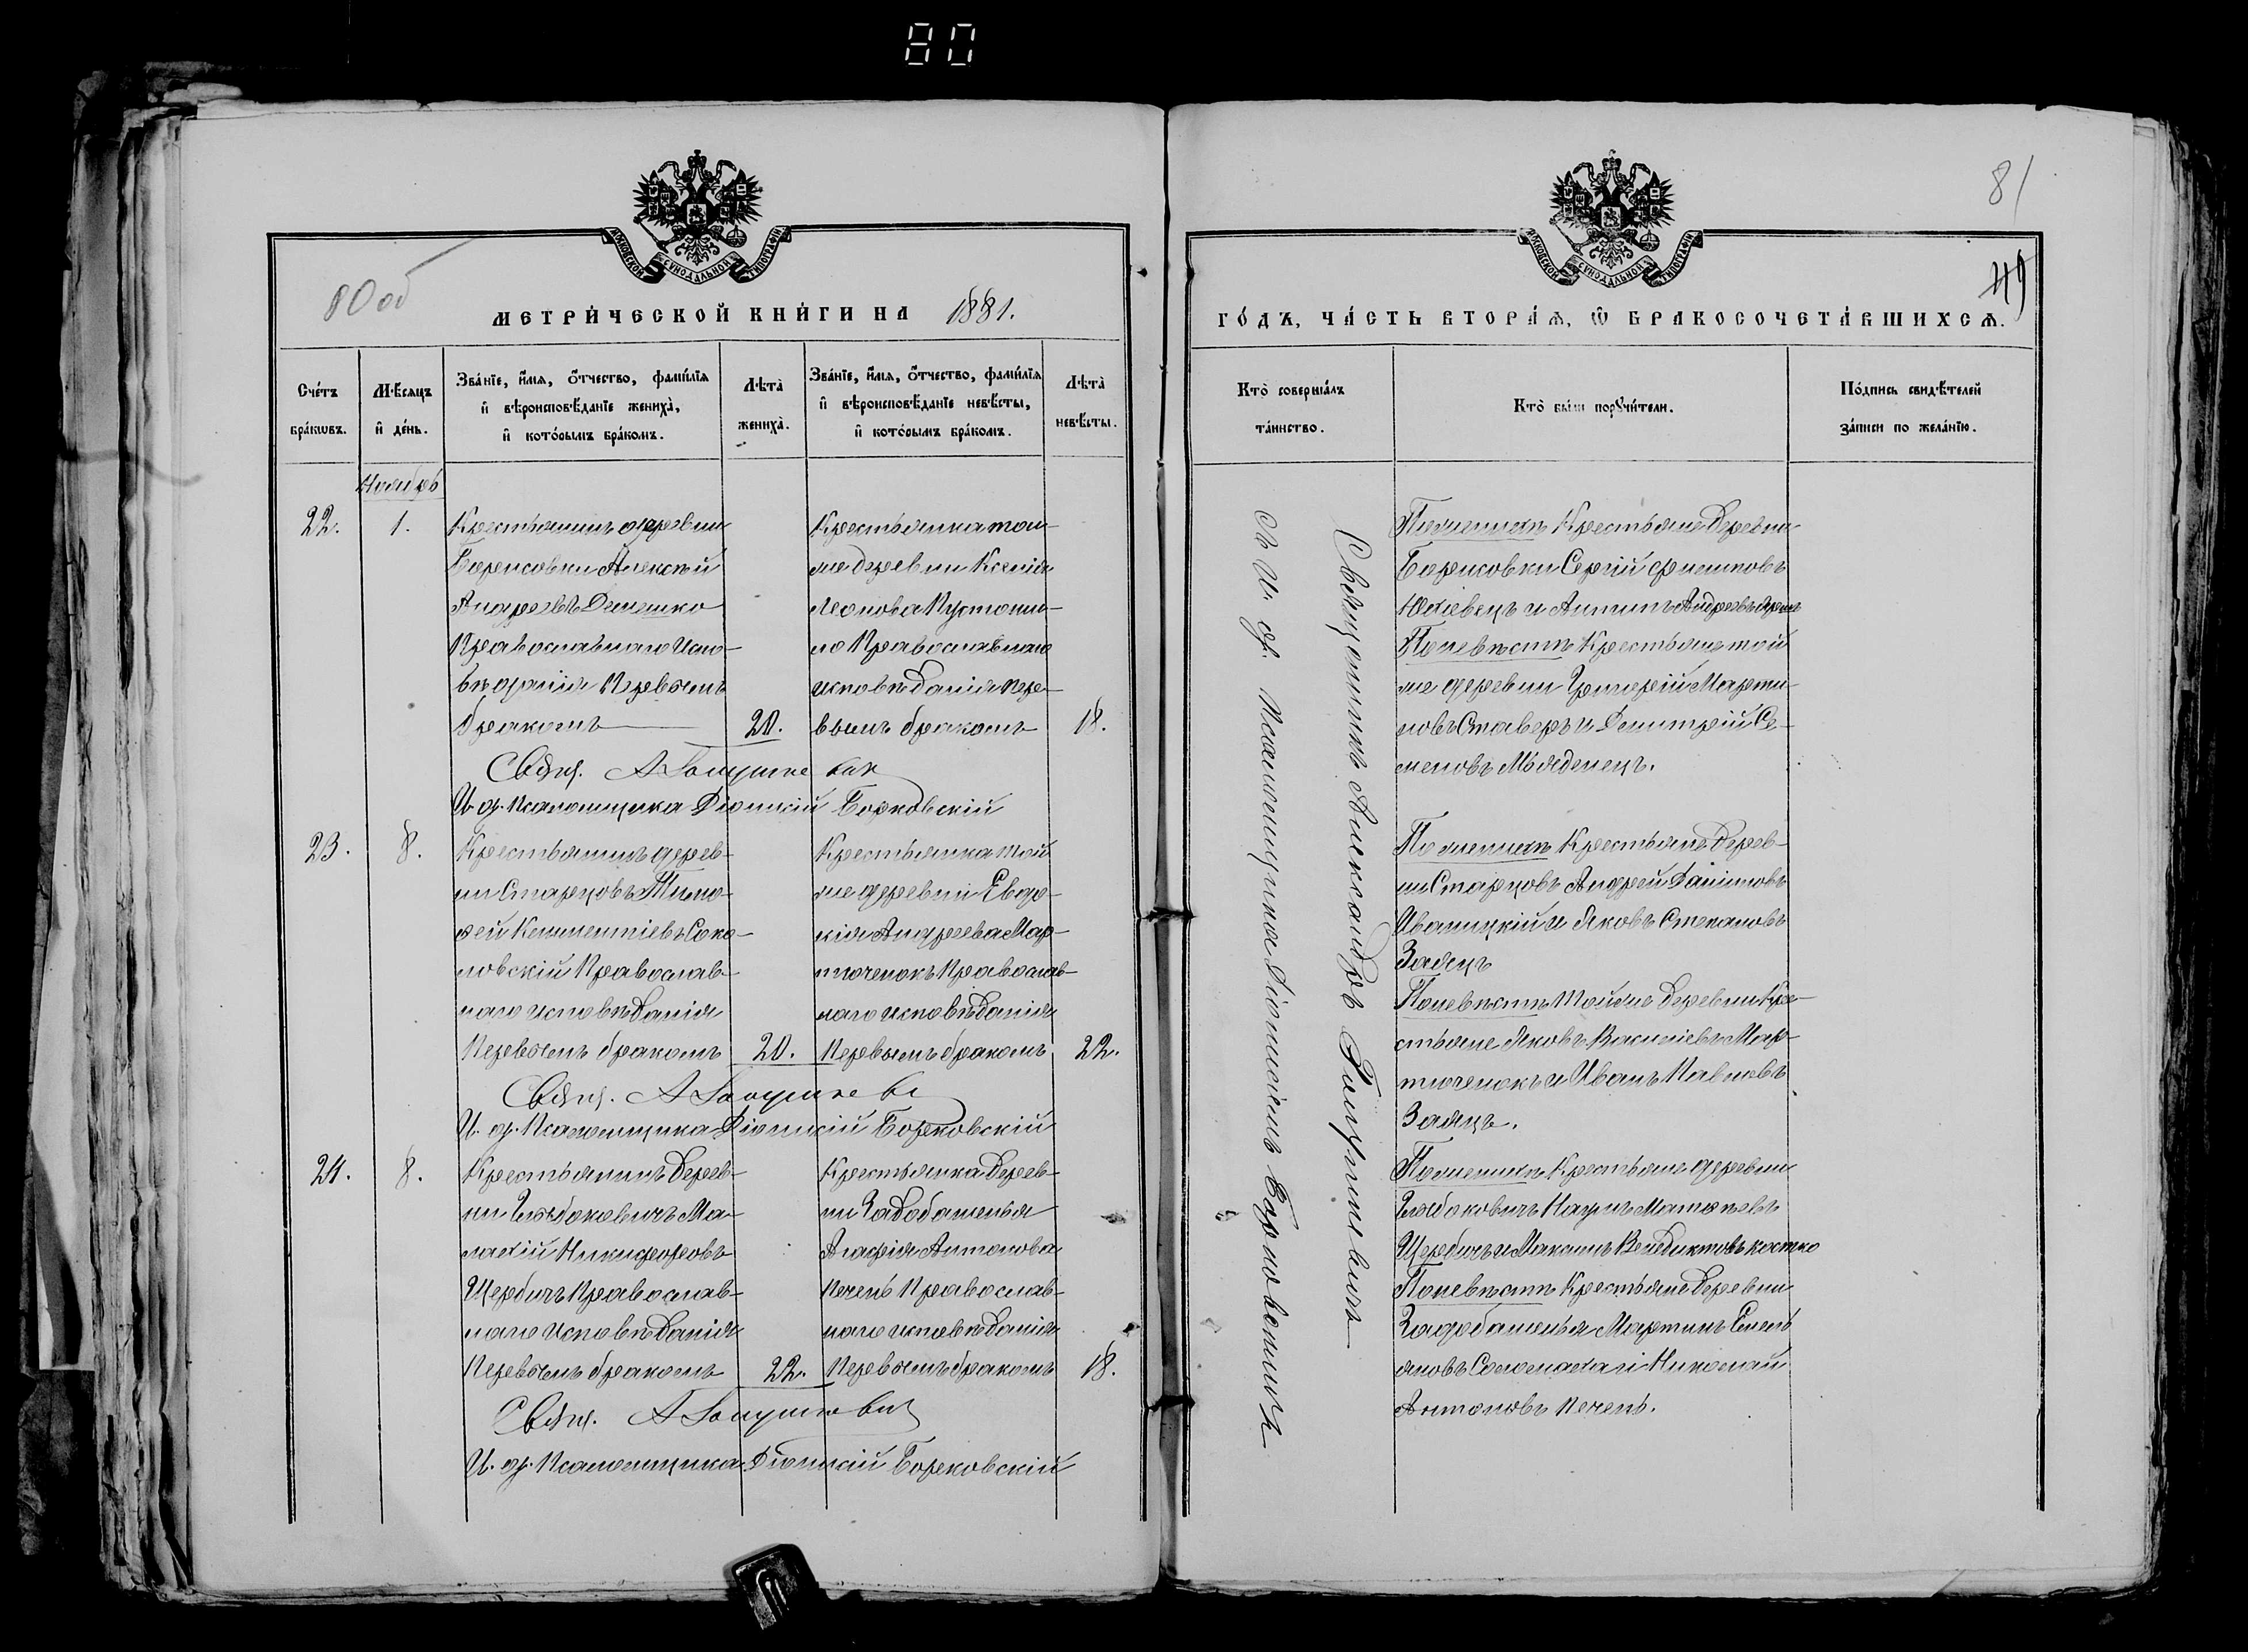 80
80 об
МЕТРИЧЕСКОЙ КНИГИ НА 1881.
Счетъ браковъ.
Мѣсяцъ и день.
Званіе, имя, отчество, фамилія и вѣроисповѣданіе жениха, и которымъ бракомъ.
Лѣта жениха.
Званіе, имя, отчество, фамилія и вѣроисповѣданіе невѣсты, и которымъ бракомъ.
Лѣта невѣсты.
Ноябрь
22.
1.
Крестьянинъ деревни
Борисовки Алексѣй
Андреевъ Демешко
Православнаго Испо-
вѣданія Первымъ
бракомъ
20.
Крестьянка той-
же деревни Ксенія
Леонова
Православнаго
исповѣданія пер-
вымъ бракомъ
18.
Свящ. А Голушкевич
И. д. Псаломщика Діонисій Борковскій
23.
8.
Крестьянинъ дерев-
ни Старцовъ Тимо-
ѳей Климентіевъ Соко-
ловскій Православ-
наго исповѣданія
Первымъ бракомъ
20.
Крестьянка той
же деревни Евдо-
кія Андреева Мар-
тюченокъ Православ-
наго исповѣданія
Первымъ бракомъ
22.
Свящ. А Голушкеви
И. д. Псаломщика Діонисій Борковскій
24.
8.
Крестьянинъ дерев-
ни Глыбоковичъ Ма-
лахій Никифоровъ
Щербичъ Православ-
наго исповѣданія
Первымъ бракомъ
22.
Крестьянка дерев-
ни Задобашенья
Агафія Антонова
Печень Православ-
наго исповѣданія
Первымъ бракомъ
18.
Свящ. А Голушкевич
И. д. Псаломщика Діонисій Борковскій
81
49
ГОДЪ, ЧАСТЬ ВТОРАЯ, Ѡ БРАКОСОЧЕТАВШИХСЯ.
Кто совершалъ таинство.
Кто были поручители.
Подпись свидѣтелей записи по желанію.
Священникъ Александръ Голушкевичъ
съ И. д. Псаломщика Діонисіемъ Борковскимъ
По женихѣ Крестьяне деревни
Борисовки Сергій Филиповъ
и Антипъ Андреевъ
По невѣстѣ Крестьяне той
же деревни Григорій Марти-
новъ Ставеръ и Димитрій Се-
меновъ
По женихѣ Крестьяне дерев-
ни Старцовъ Андрей Даниловъ
Иваницкій и Яковъ Степановъ
Заяцъ
По невѣстѣ Той же деревни Кре-
стьяне Яковъ Василіевъ Мар-
тюченокъ и Иванъ Павловъ
Заяцъ.
По женихѣ Крестьяне деревни
Глыбоковичъ Наумъ Матѳеевъ
Щербичъ и Максимъ Венедиктовъ Костко
По невѣстѣ Крестьяне деревни
Задобашенья Мартинъ Емель
яновъ Соломаха и Николай
Антоновъ Печень.